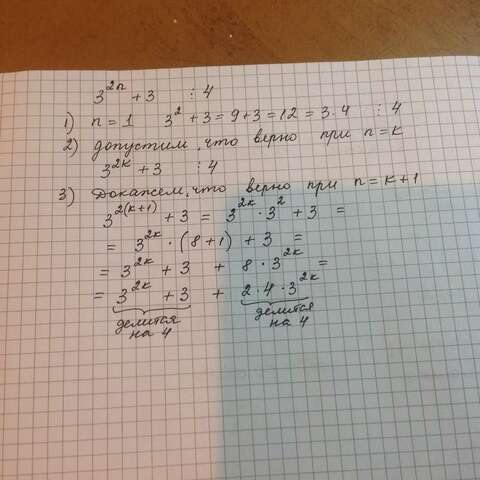 3^{2n} + 3 ⋮ 4
1) n = 1 3^2 + 3 = 9 + 3 = 12 = 3 · 4 ⋮ 4
2) допустим, что верно при n = k
3^{2k} + 3 ⋮ 4
3) Докажем, что верно при n = k + 1
3^{2(k+1)} + 3 = 3^{2k} · 3^2 + 3 =
= 3^{2k} · (8 + 1) + 3 =
= 3^{2k} + 3 + 8 · 3^{2k} =
= 3^{2k} + 3 + 2 · 4 · 3^{2k}
делится на 4 делится на 4